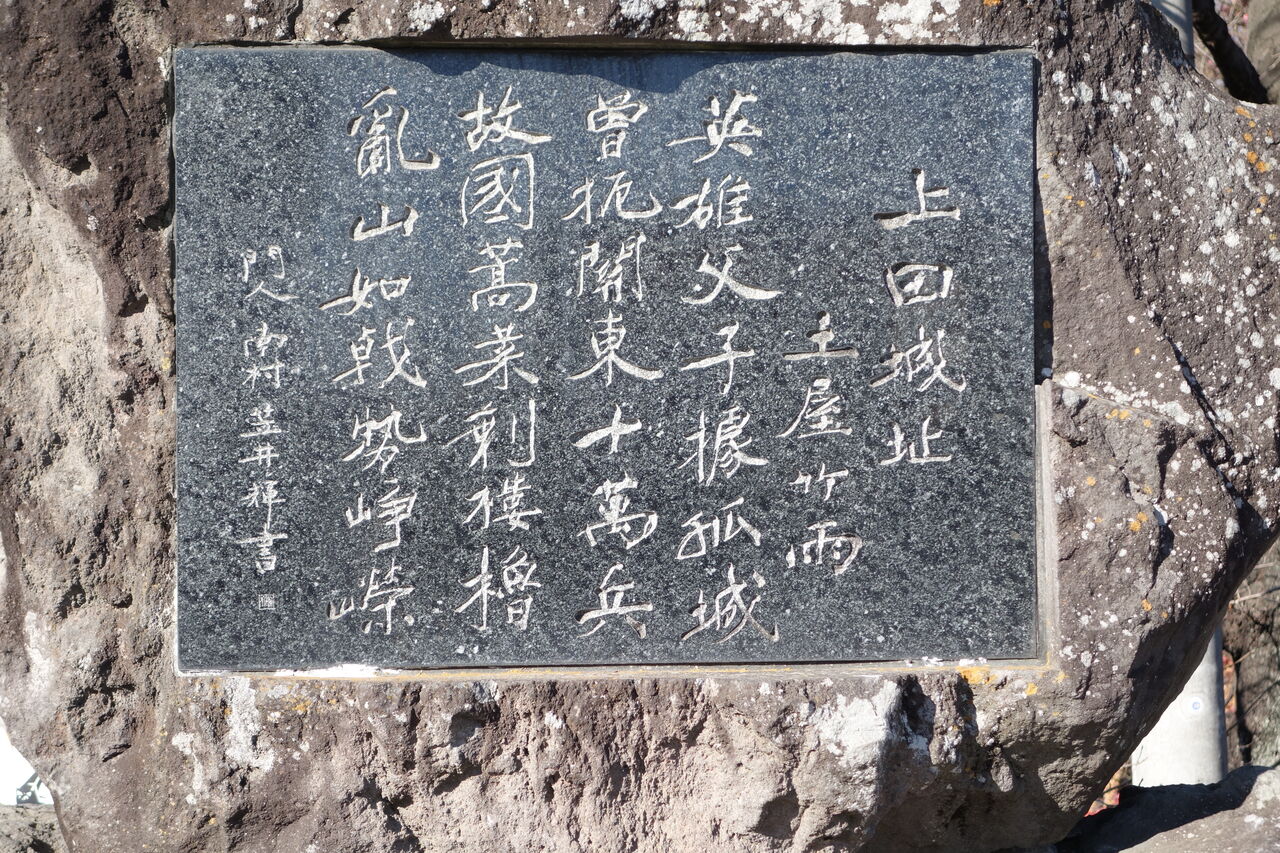 上田城址
土屋竹雨
英雄父子據孤城
曾扼關東十萬兵
故國蒿萊剩樓櫓
亂山如戟勢崢嶸
門人 南村 笠井輝書